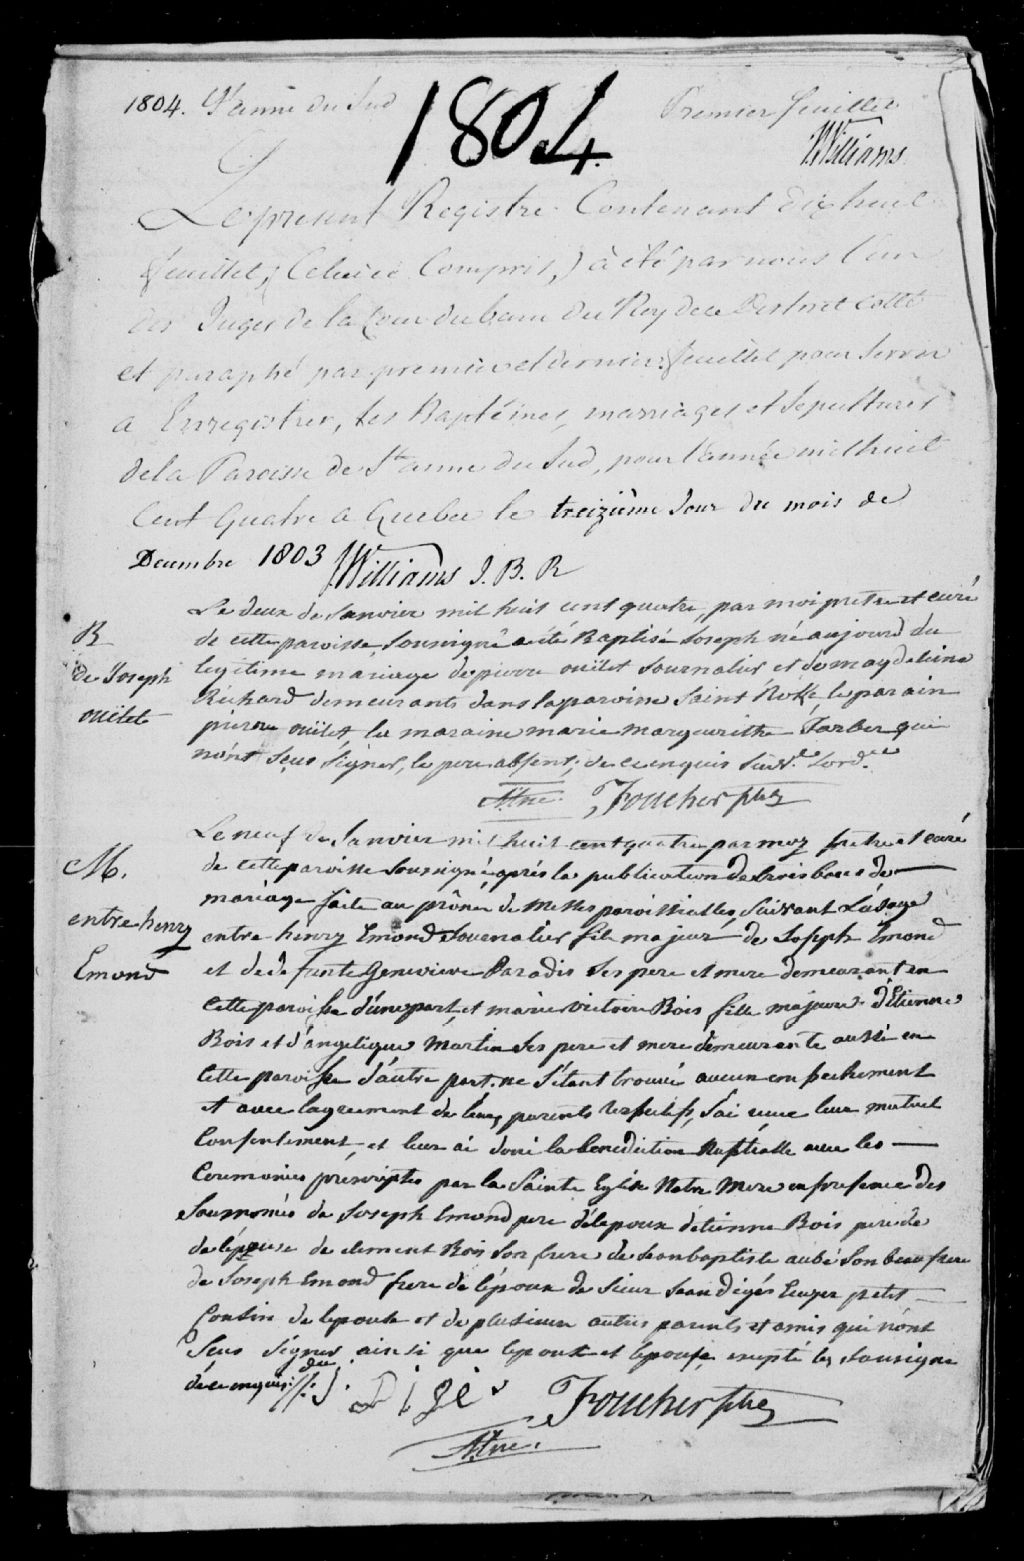 1804. St anne du Sud
1804.
Premier feuillet
JWilliams
Le present Registre Contenant dix huit
feuillets, (Celui ci Compris,) à été par nous l'un
des Juges de la Cour du banc du Roy de ce District cotté
et paraphé par premier et dernier feuillet pour servir
a Enregistrer, les Baptêmes, marriages et sepultures
de la Paroisse de St anne du Sud, pour l'année mil huit
Cent Quatre a Quebec le treizième Jour du mois de
Decembre 1803 JWilliams J. B. R
B
de Joseph
ouillet
Le deux de Janvier mil huit cent quatre, par moi pretre et curé
de cette paroisse soussigné a été Baptisé Joseph né aujourd du
legitime mariage de pierre ouillet Journalier et de magdeleine
Richard demeurants dans la paroisse Saint Rok, le parain
pierre ouillet, la maraine marie marguerithe Tarber qui
n'ont sçus signer, le pere absent; de ce enquis
Foucher ptre
M.
entre henry
Emond
Le neuf de Janvier mil huit cent quatre par moy pretre et curé
de cette paroisse soussigné, après la publication de trois bans de
mariage faite au prône de Messes paroissialles, suivant L'usage
entre henry Emond Journalier fils majeur de Joseph Emond
et de defunte Genevieve Paradis ses pere et mere demeurant en
cette paroisse d'une part, et marie victoire Bois fille majeure d'Etienne
Bois et d'angelique Martin ses pere et mere demeurante aussi en
cette paroisse d'autre part. ne s'étant trouvé aucun empechement
et avec l'agreement de leurs parents respectifs, J'ai reçue leur mutuel
Consentement, et leur ai doné la benediction Nuptialle avec les
Ceremonies prescriptes par la Sainte Eglise Notre Mere en presence des
Sousnomés de Joseph Emond pere de l'epoux d'etienne Bois pere de
de l'épouse de clement Bois son frere de Jean baptiste aubé son beau frere
de Joseph Emond frere de l'époux de sieur Jean Digés Leuyer petit
Cousin de l'epouse et de plusieur autres parents et amis qui n'ont
Sçus Signer ainsi que l'epoux et l'épouse excepté les sousigné
de ce enquis
Digé
Foucher ptre